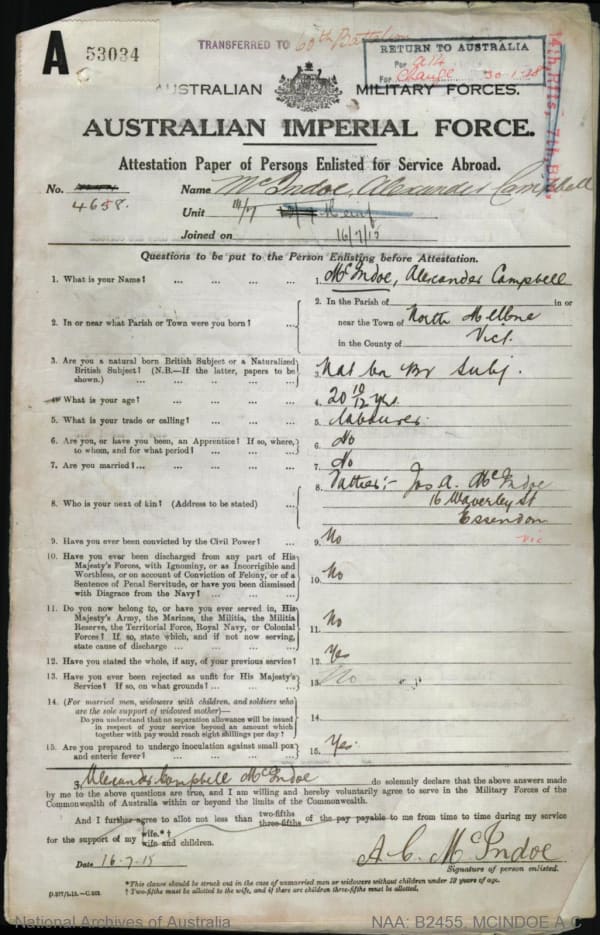 A 53034
TRANSFERRED TO 60th Battalion
RETURN TO AUSTRALIA
Per A14
For Change 30-1-18
AUSTRALIAN MILITARY FORCES.
AUSTRALIAN IMPERIAL FORCE.
Attestation Paper of Persons Enlisted for Service Abroad.
No. 4658. Name McIndoe, Alexander Campbell
Unit 14/7
Joined on 16/7/15
Questions to be put to the Person Enlisting before Attestation.
1. What is your Name? ... ... ... 1. McIndoe, Alexander Campbell
2. In or near what Parish or Town were you born? ... 2. In the Parish of in or
near the Town of North Melbne
in the County of Vict.
3. Are you a natural born British Subject or a Naturalized
British Subject? (N.B.—If the latter, papers to be
shown.) ... ... ... ... 3. Nat bn Br Subj.
4. What is your age? ... ... ... 4. 20 10/12 yrs
5. What is your trade or calling? ... ... ... 5. Labourer
6. Are you, or have you been, an Apprentice? If so, where,
to whom, and for what period? ... ... 6. No
7. Are you married? ... ... ... ... 7. No
8. Who is your next of kin? (Address to be stated) ... 8. Father:- Jas A. McIndoe
16 Waverley St
Essendon
Vic
9. Have you ever been convicted by the Civil Power? ... 9. No
10. Have you ever been discharged from any part of His
Majesty's Forces, with Ignominy, or as Incorrigible and
Worthless, or on account of Conviction of Felony, or of a
Sentence of Penal Servitude, or have you been dismissed
with Disgrace from the Navy? ... ... 10. No
11. Do you now belong to, or have you ever served in, His
Majesty's Army, the Marines, the Militia, the Militia
Reserve, the Territorial Force, Royal Navy, or Colonial
Forces? If so, state which, and if not now serving,
state cause of discharge ... ... ... 11. No
12. Have you stated the whole, if any, of your previous service? 12. Yes
13. Have you ever been rejected as unfit for His Majesty's
Service? If so, on what grounds? ... ... 13. No
14. (For married men, widowers with children, and soldiers who
are the sole support of widowed mother)—
Do you understand that no separation allowance will be issued
in respect of your service beyond an amount which
together with pay would reach eight shillings per day? 14.
15. Are you prepared to undergo inoculation against small pox
and enteric fever? ... ... ... ... 15. Yes
I, Alexander Campbell McIndoe do solemnly declare that the above answers made
by me to the above questions are true, and I am willing and hereby voluntarily agree to serve in the Military Forces of the
Commonwealth of Australia within or beyond the limits of the Commonwealth.
And I further agree to allot not less than two-fifths three-fifths of the pay payable to me from time to time during my service
for the support of my wife.*† wife and children.
Date 16-7-15
A C. McIndoe
Signature of person enlisted.
*This clause should be struck out in the case of unmarried men or widowers without children under 18 years of age.
† Two-fifths must be allotted to the wife, and if there are children three-fifths must be allotted.
National Archives of Australia NAA: B2455, MCINDOE A C